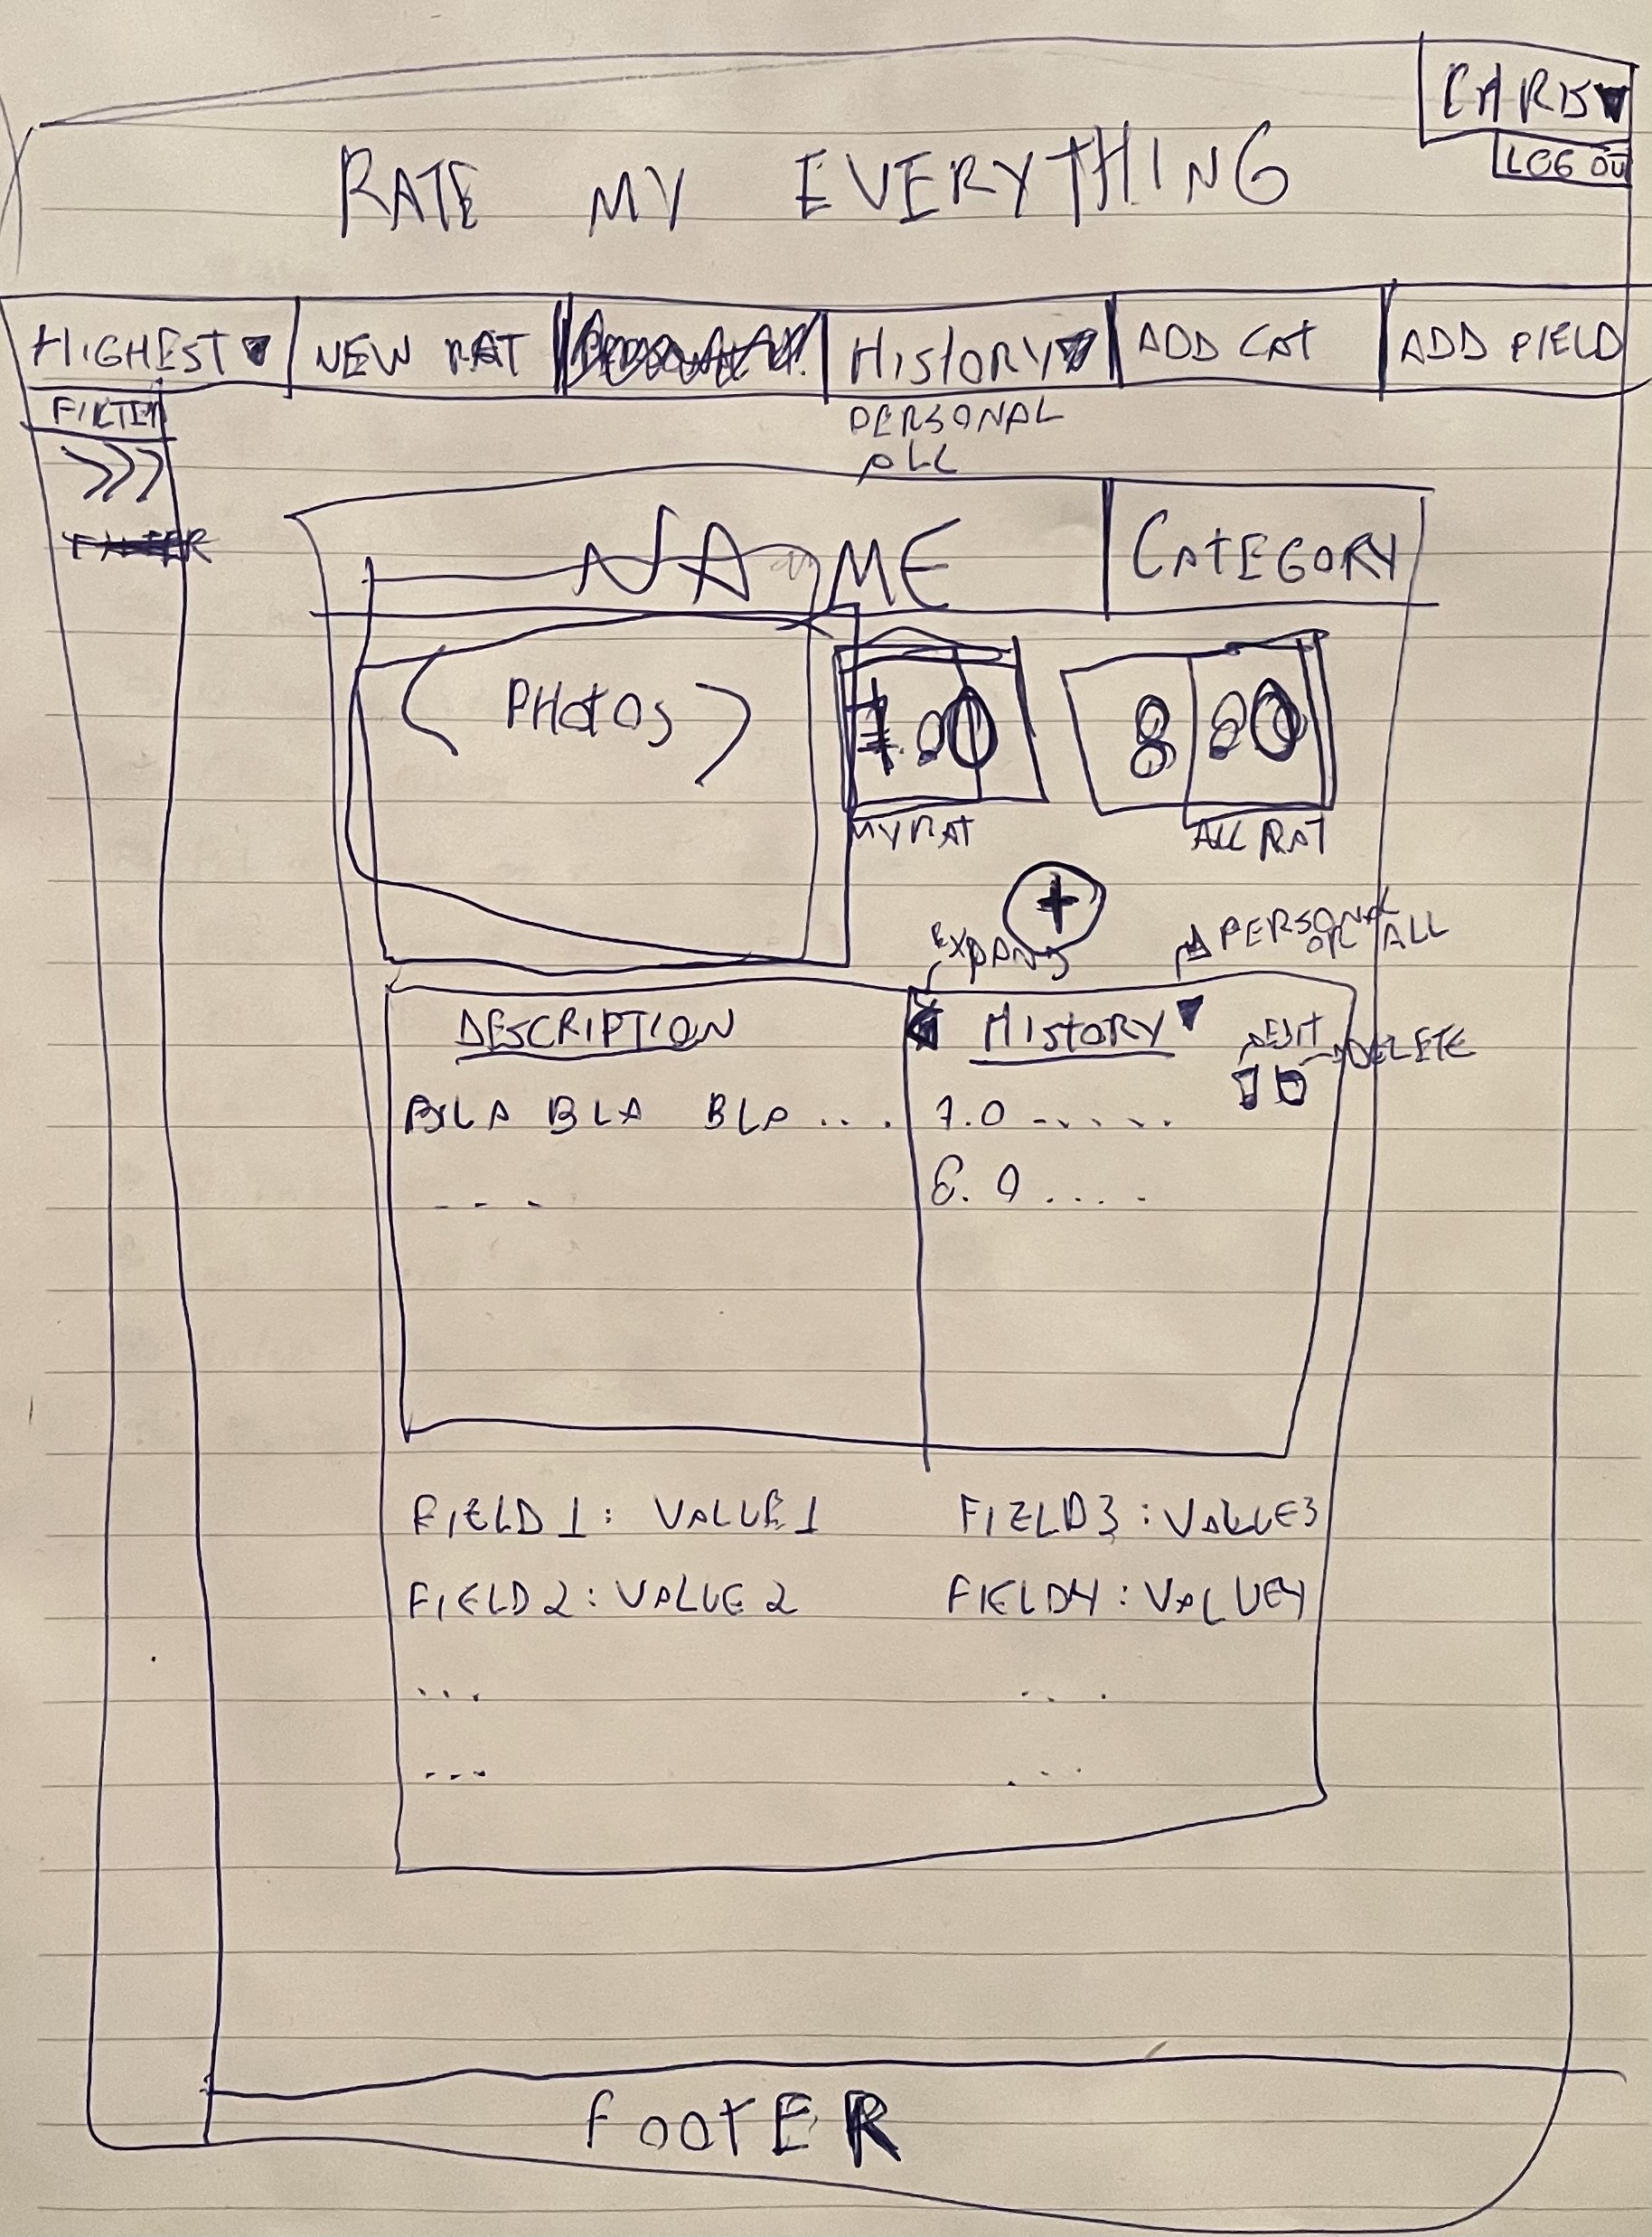 CHRIS
LOG OU
RATE MY EVERYTHING
HIGHEST NEW RAT HISTORY ADD CAT ADD FIELD
FILTER
PERSONAL
ALL
>>>
NAME CATEGORY
< PHOTOS > .0 8 .0
MY RAT ALL RAT
+
EXPAND PERSONAL
OR ALL
DESCRIPTION HISTORY EDIT DELETE
BLA BLA BLA ... 7.0 .....
... 6.0 ....
FIELD1: VALUE1 FIELD3: VALUE3
FIELD2: VALUE2 FIELD4: VALUE4
... ...
... ...
FOOTER